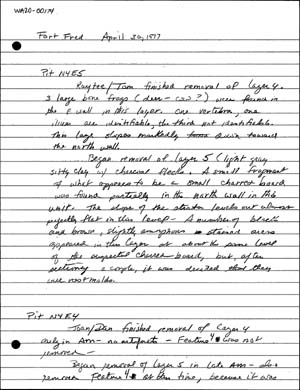 WA20-00174
Fort Fred April 30, 1977
Pit N4E5
Kaytee/Tom finished removal of Layer 4.
3 large bone frags (deer - cow?) were found in
the E wall in this layer. One vertebra, one
are identifiable, the third not identifiable.
This layer slopes markedly down toward
the north wall.
Began removal of Layer 5 (light gray
silty clay w/ charcoal flecks. A small fragment
of what appears to be a small charred board
was found partially in the north wall in this
unit. The slope of the strata levels out almost
perfectly flat in this level - A number of black
and brown, slightly amorphous stained areas
appeared in this layer at about the same level
of the suspected charred board, but, after
sectioning a couple, it was decided that they
were root molds.
Pit N4E4
Tom/Dan finished removal of Layer 4
early in Am - no artifacts - Feature 4 was not
removed -
Began removal of Layer 5 in late Am - Also
removed Feature 4 at this time, because it was